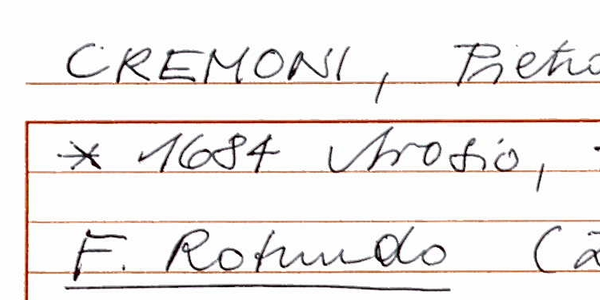 CREMONI, Pietro
* 1684 Arosio,
F. Rotundo (